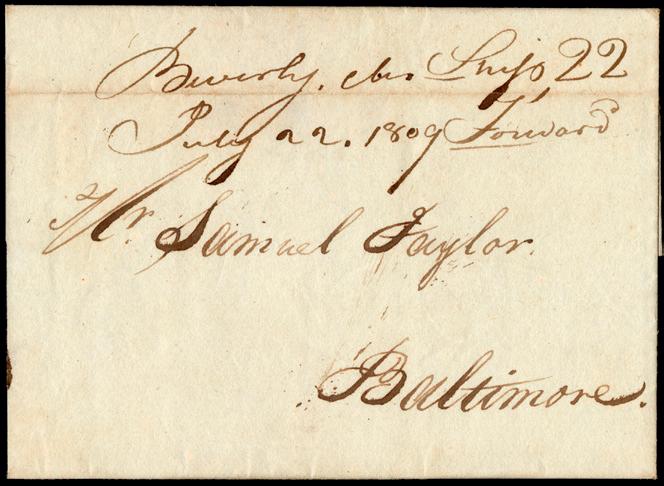 Beverly. Ms. Ship 22
July 22. 1809 Forward
Mr. Samuel Taylor.
Baltimore.